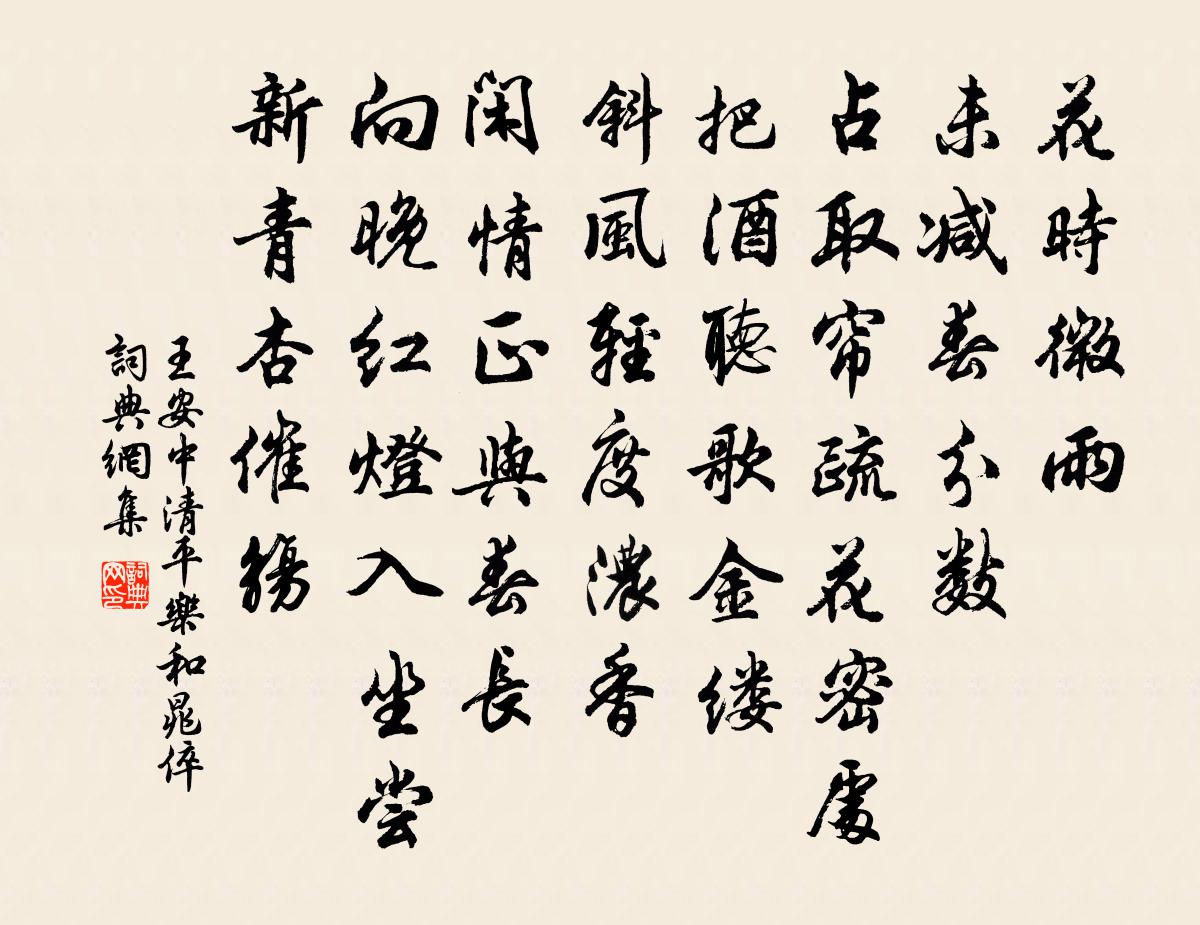 花時微雨
未减春分数
占取帘疏花密處
把酒聽歌金缕
斜風輕度濃香
闲情正與春長
向晚红燈入坐尝
新青杏催觴
王安中清平樂和晁倅
詞典網集
詞典
网印